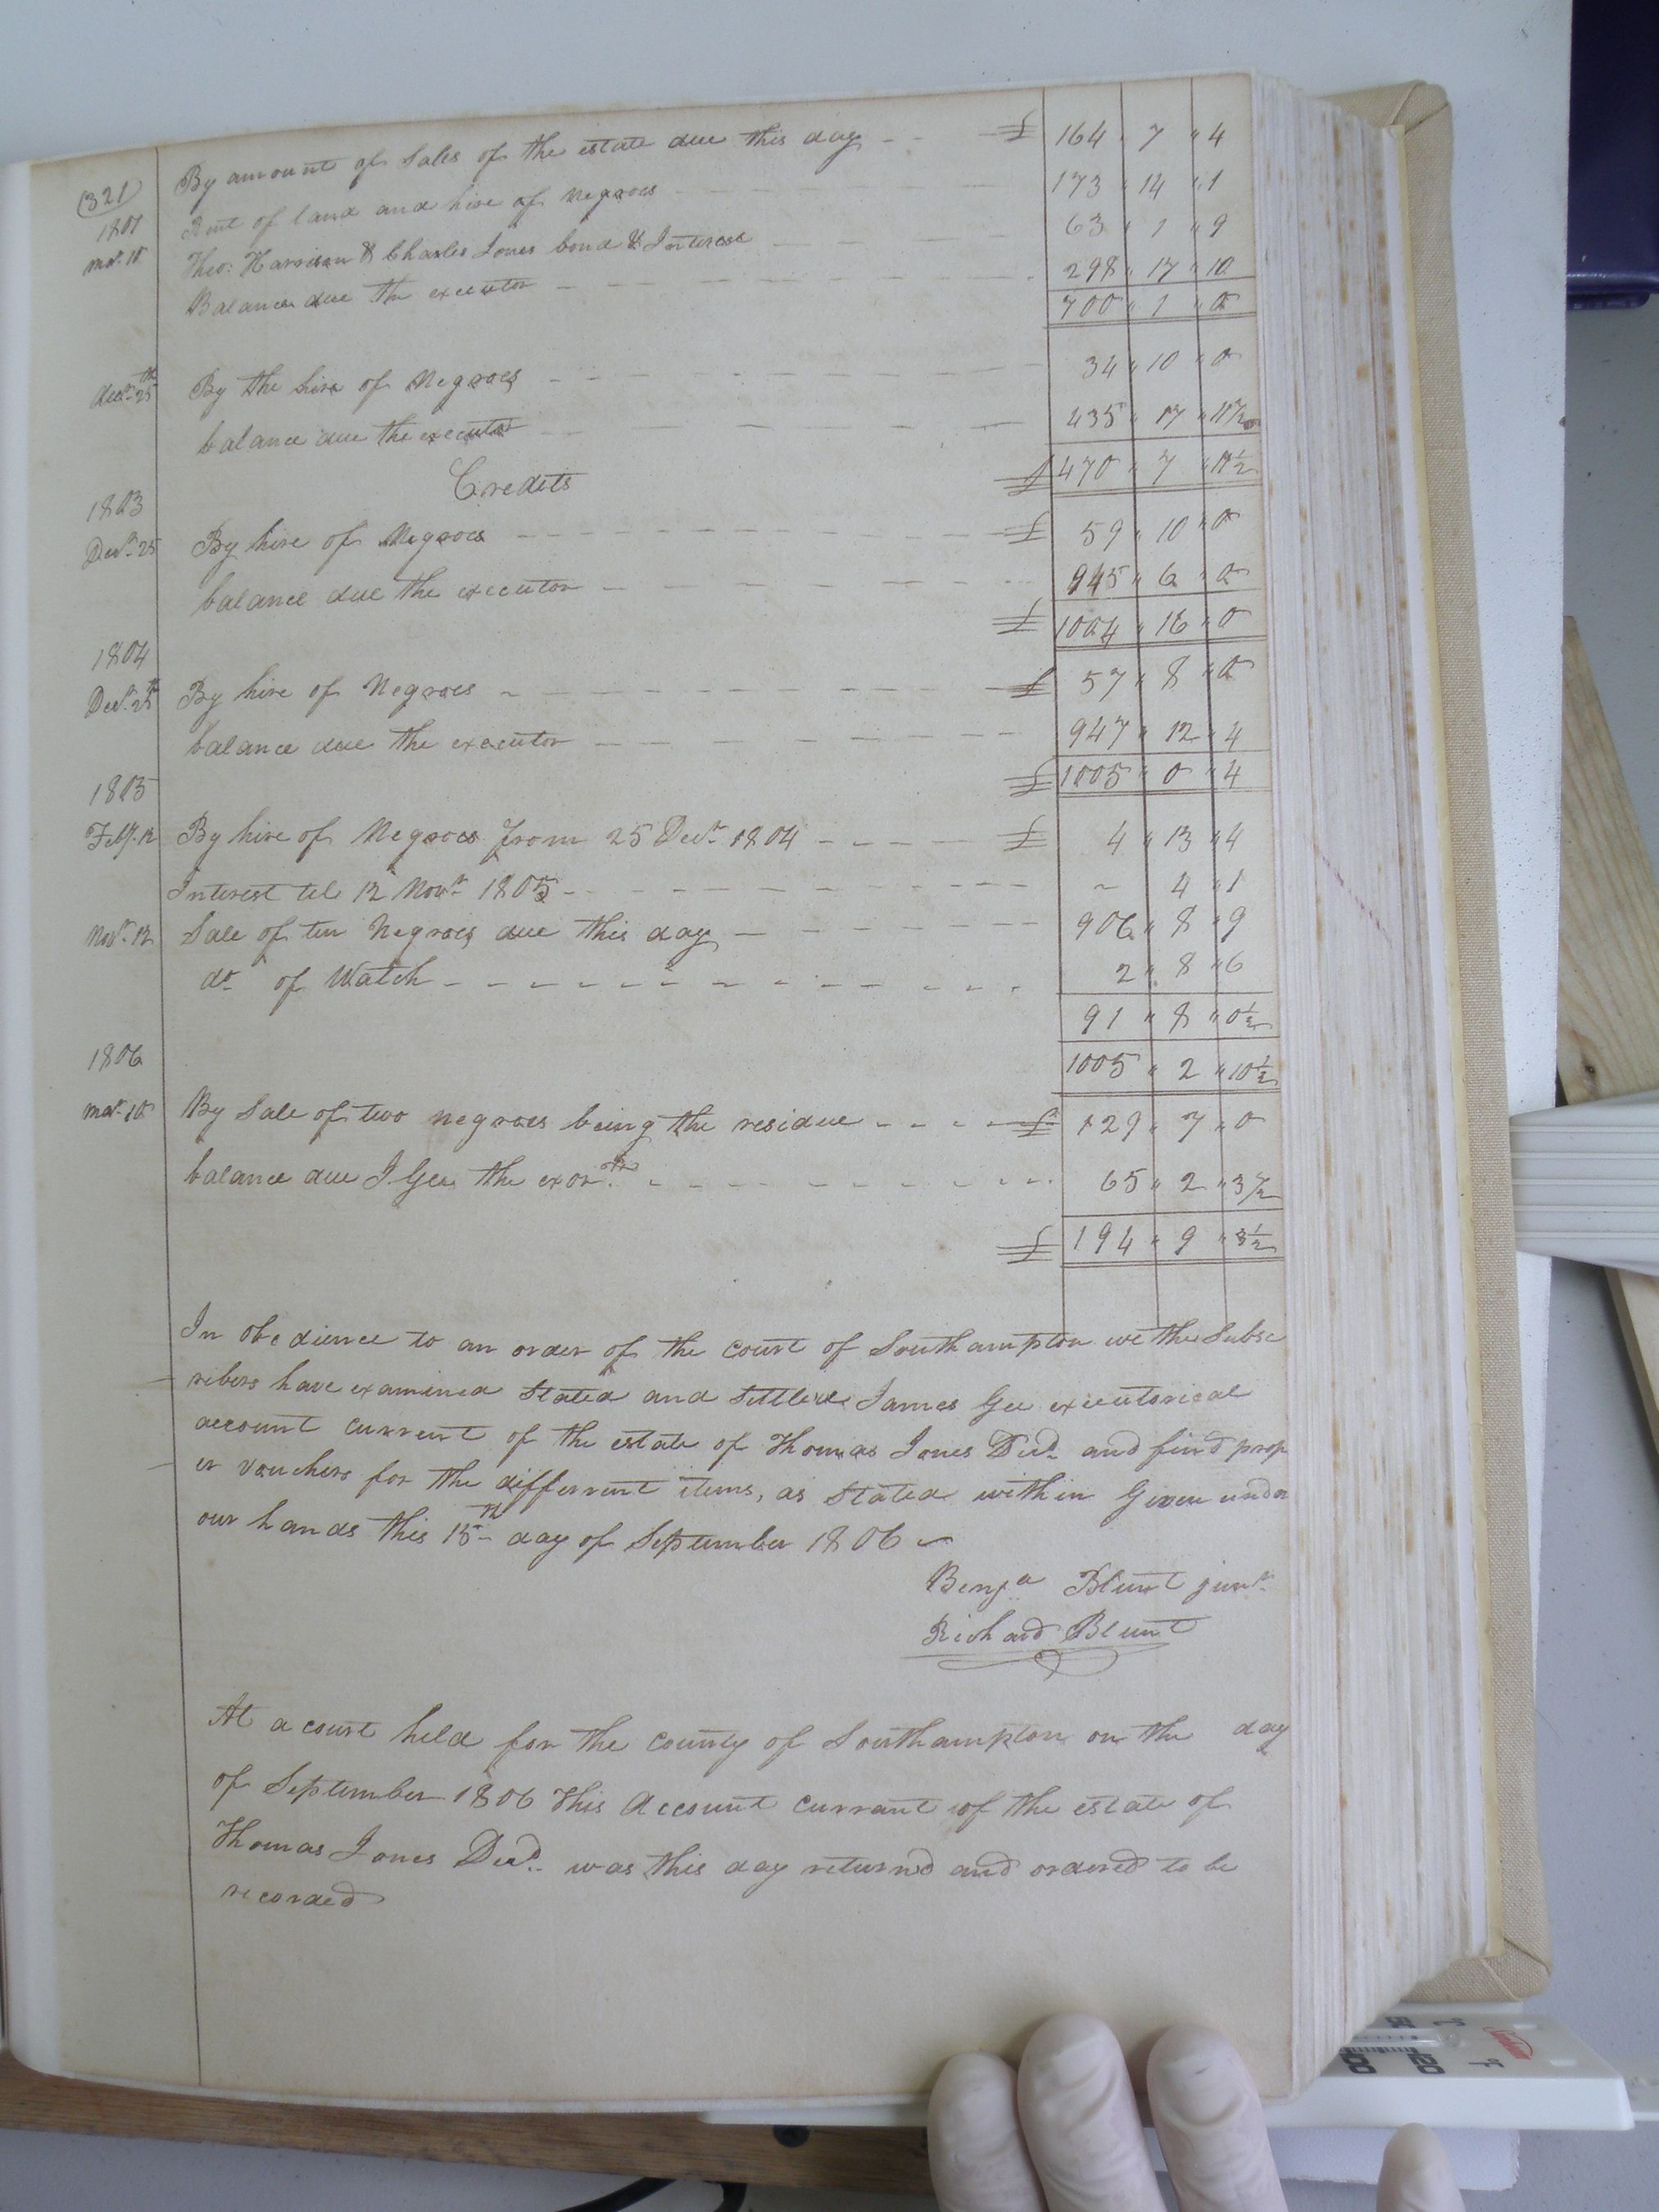 (321)
By amount of Sales of the estate due this day - - £ 164 " 7 " 4
1801 Rent of land and hire of Negroes 173 " 14 " 1
mar. 10 Theo: Harrison & Charles Jones bond & Interest 63 " 1 " 9
Balance due the executor 298 " 17 " 10
700 " 1 " 0
decr. 25th By the hire of Negroes 34 " 10 " 0
balance due the executor 435 " 17 " 11 1/2
£ 470 " 7 " 11 1/2
Credits
1803
Decr. 25 By hire of Negroes £ 59 " 10 " 0
balance due the executor 945 " 6 " 0
£ 1004 " 16 " 0
1804
Decr. 25th By hire of Negroes £ 57 " 8 " 0
balance due the executor 947 " 12 " 4
£ 1005 " 0 " 4
1805
Feby. 12 By hire of Negroes from 25 Decr. 1804 £ 4 " 13 " 4
Interest til 12 Novr. 1805 ~ 4 " 1
Novr. 12 Sale of ten Negroes due this day 906 " 8 " 9
do. of Watch 2 " 8 " 6
91 " 8 " 0 1/2
1005 " 2 " 10 1/2
1806
mar. 10 By Sale of two negroes being the residue £ 129 " 7 " 0
balance due J. Gee the exor. 65 " 2 " 3 1/2
£ 194 " 9 " 3 1/2
In obedience to an order of the court of Southampton we the Subsc
ribers have examined Stated and Settled James Gee executorical
account current of the estate of Thomas Jones Decd. and find prop
er vouchers for the different items, as Stated within Given under
our hands this 15th day of September 1806
Benja. Blunt junr.
Richard Blunt
At a court held for the County of Southampton on the day
of September 1806 This Account currant of the estate of
Thomas Jones Decd. was this day returnd and ordered to be
recorded